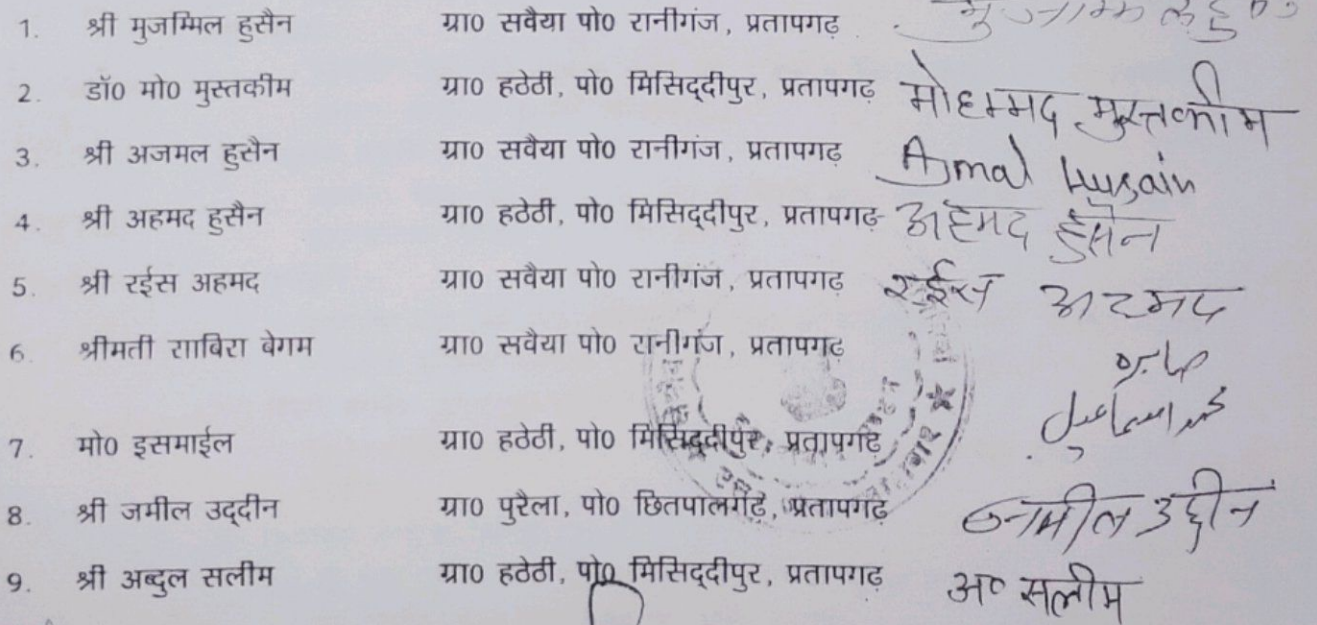 1. श्री मुजम्मिल हुसैन ग्रा0 सवैया पो0 रानीगंज, प्रतापगढ़
2. डॉ0 मो0 मुस्तकीम ग्रा0 हठेठी, पो0 मिसिद्दीपुर, प्रतापगढ़ मोहम्मद मुस्तकीम
3. श्री अजमल हुसैन ग्रा0 सवैया पो0 रानीगंज, प्रतापगढ़ Ajmal Husain
4. श्री अहमद हुसैन ग्रा0 हठेठी, पो0 मिसिद्दीपुर, प्रतापगढ़ अहमद हुसैन
5. श्री रईस अहमद ग्रा0 सवैया पो0 रानीगंज, प्रतापगढ़ रईस अहमद
6. श्रीमती साबिरा बेगम ग्रा0 सवैया पो0 रानीगंज, प्रतापगढ़ صابره
7. मो0 इसमाईल ग्रा0 हठेठी, पो0 मिसिद्दीपुर, प्रतापगढ़ محمد اسماعیل
8. श्री जमील उद्दीन ग्रा0 पुरैला, पो0 छितपालगढ़, प्रतापगढ़ जमील उद्दीन
9. श्री अब्दुल सलीम ग्रा0 हठेठी, पो0 मिसिद्दीपुर, प्रतापगढ़ अ० सलीम